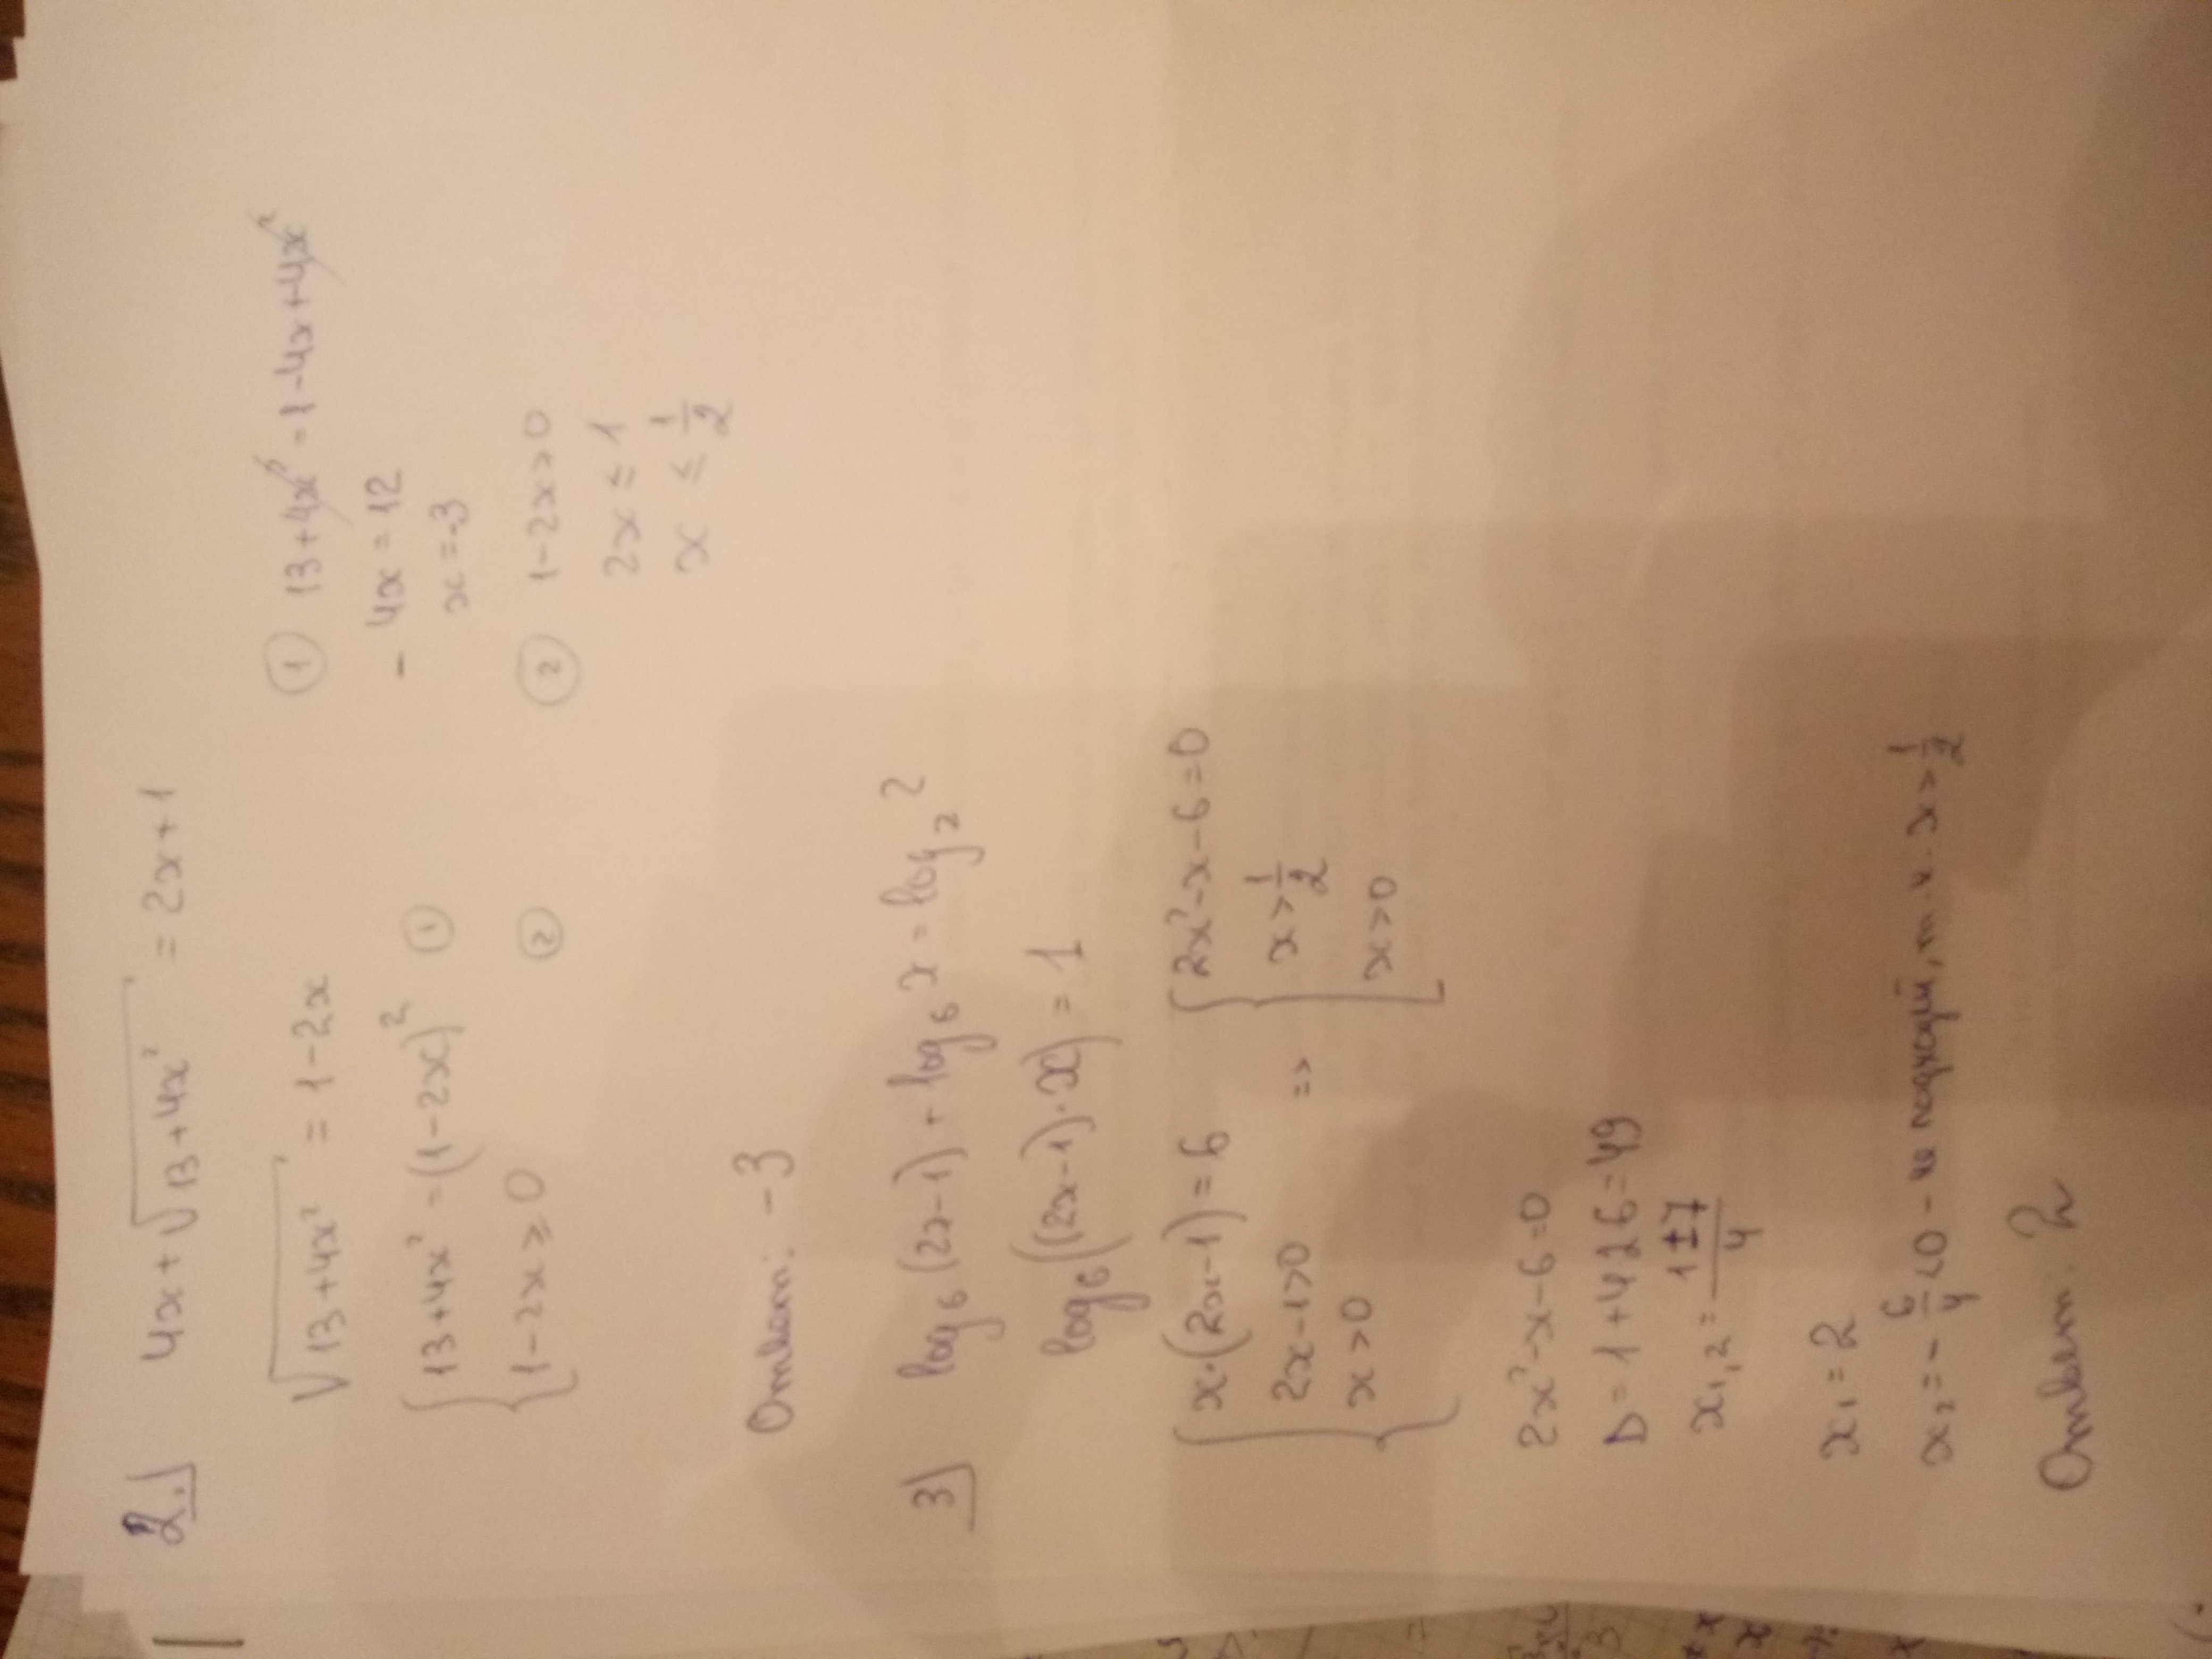 2.) 4x + √13 + 4x² = 2x + 1
√13 + 4x² = 1 - 2x
{ 13 + 4x² = (1 - 2x)² ①
{ 1 - 2x ≥ 0 ②
① 13 + 4x² = 1 - 4x + 4x²
- 4x = 12
x = -3
② 1 - 2x > 0
2x ≤ 1
x ≤ 1/2
Ответ: -3
3) log₆(2x-1) + log₆ x = log₂ 2
log₆((2x-1)·x) = 1
{ x·(2x-1) = 6
{ 2x-1>0 =>
{ x>0
{ 2x² - x - 6 = 0
{ x > 1/2
{ x > 0
2x² - x - 6 = 0
D = 1 + 426 = 49
x₁,₂ = 1±7/4
x₁ = 2
x₂ = - 6/4 <0 - не подходит, т.к. x > 1/2
Ответ: 2